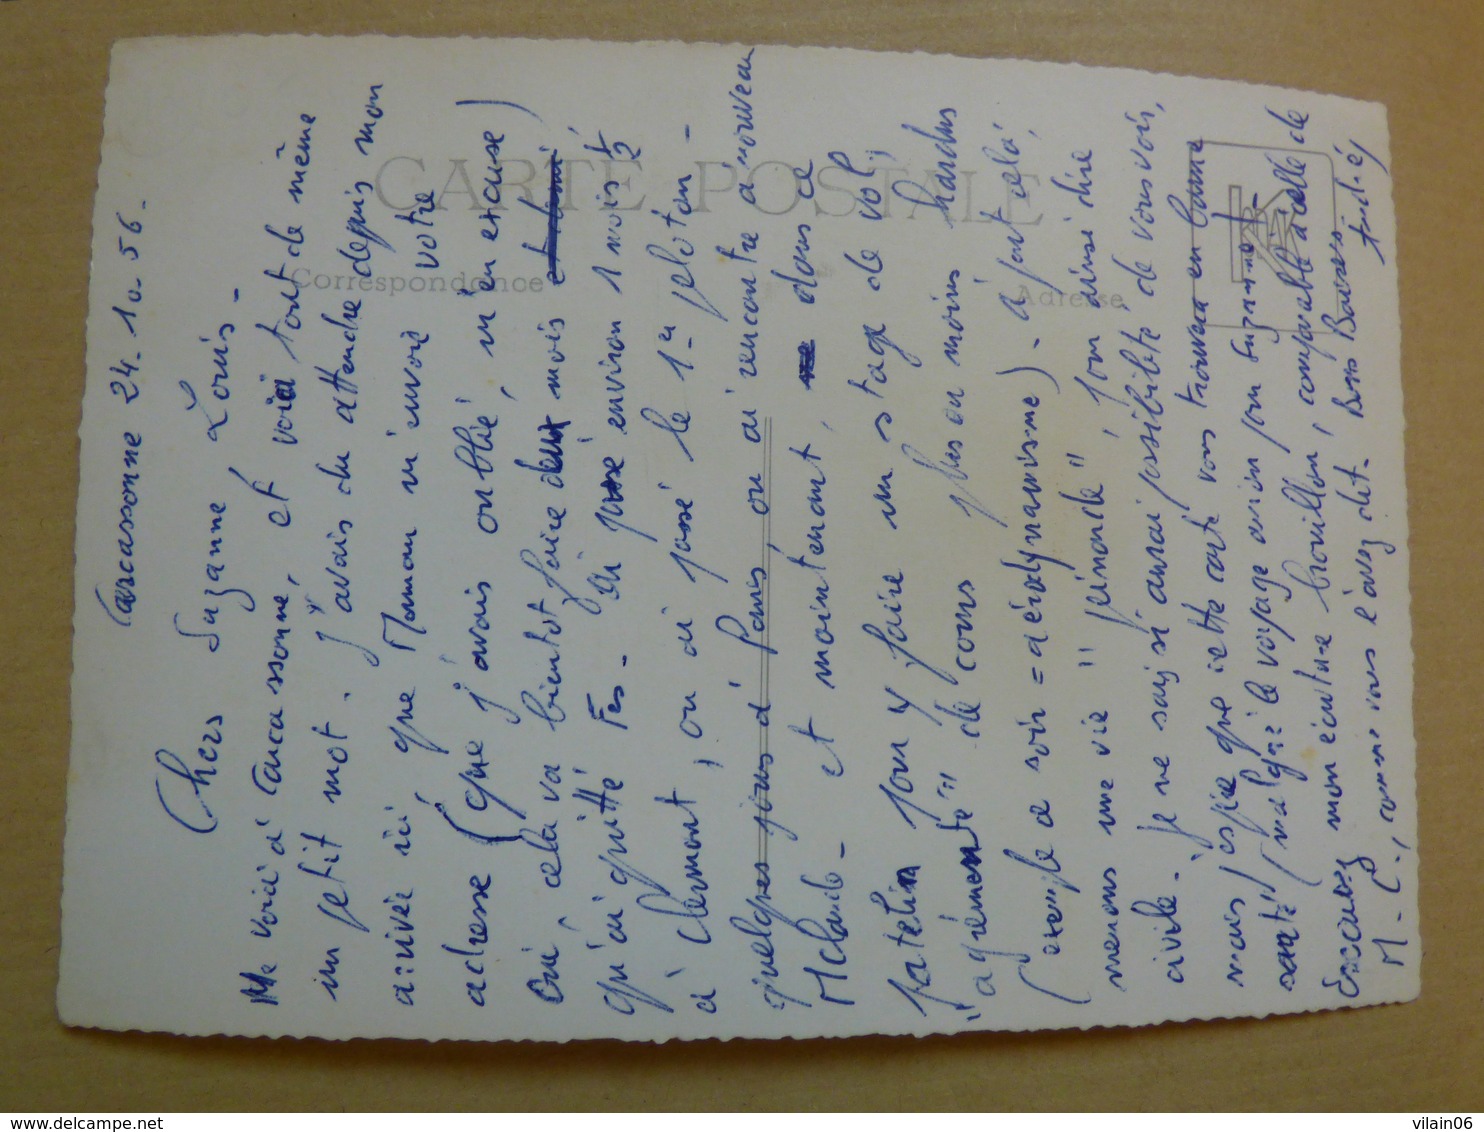 Carcassonne 24. 10. 56.
Chers Suzanne, Louis -
Me voici à Carcassonne, et voici tout de même
un petit mot. J'avais du attendre depuis mon
arrivée ici, que Maman m'envoie votre
adresse (que j'avais oublié, m'en excuse)
Oui, cela va bientôt faire deux mois et demi
qu'ai quitté Fes - ai passé environ 1 mois 1/2
à Clermont, ou ai passé le 1er peloton -
quelques jours à Paris ou ai rencontré à nouveau
M Claude - et maintenant, dans ce
patelin pour y faire un stage de vol,
"agrémenté" de cours plus ou moins hardus
(exemple ce soir = aérodynamisme) - à part cela,
menons une vie " " pour ainsi dire
civile - je ne sais si aurai possibilité de vous voir,
mais j'espère que cette carte vous trouvera en bonne
santé (malgré le voyage avion pour Suzanne -
Excusez mon écriture brouillon, comparable à celle de
M - C., comme vous l'avez dit. Bons Baisers -
André
CARTE POSTALE
Correspondance
Adresse
delcampe.net
vilain06